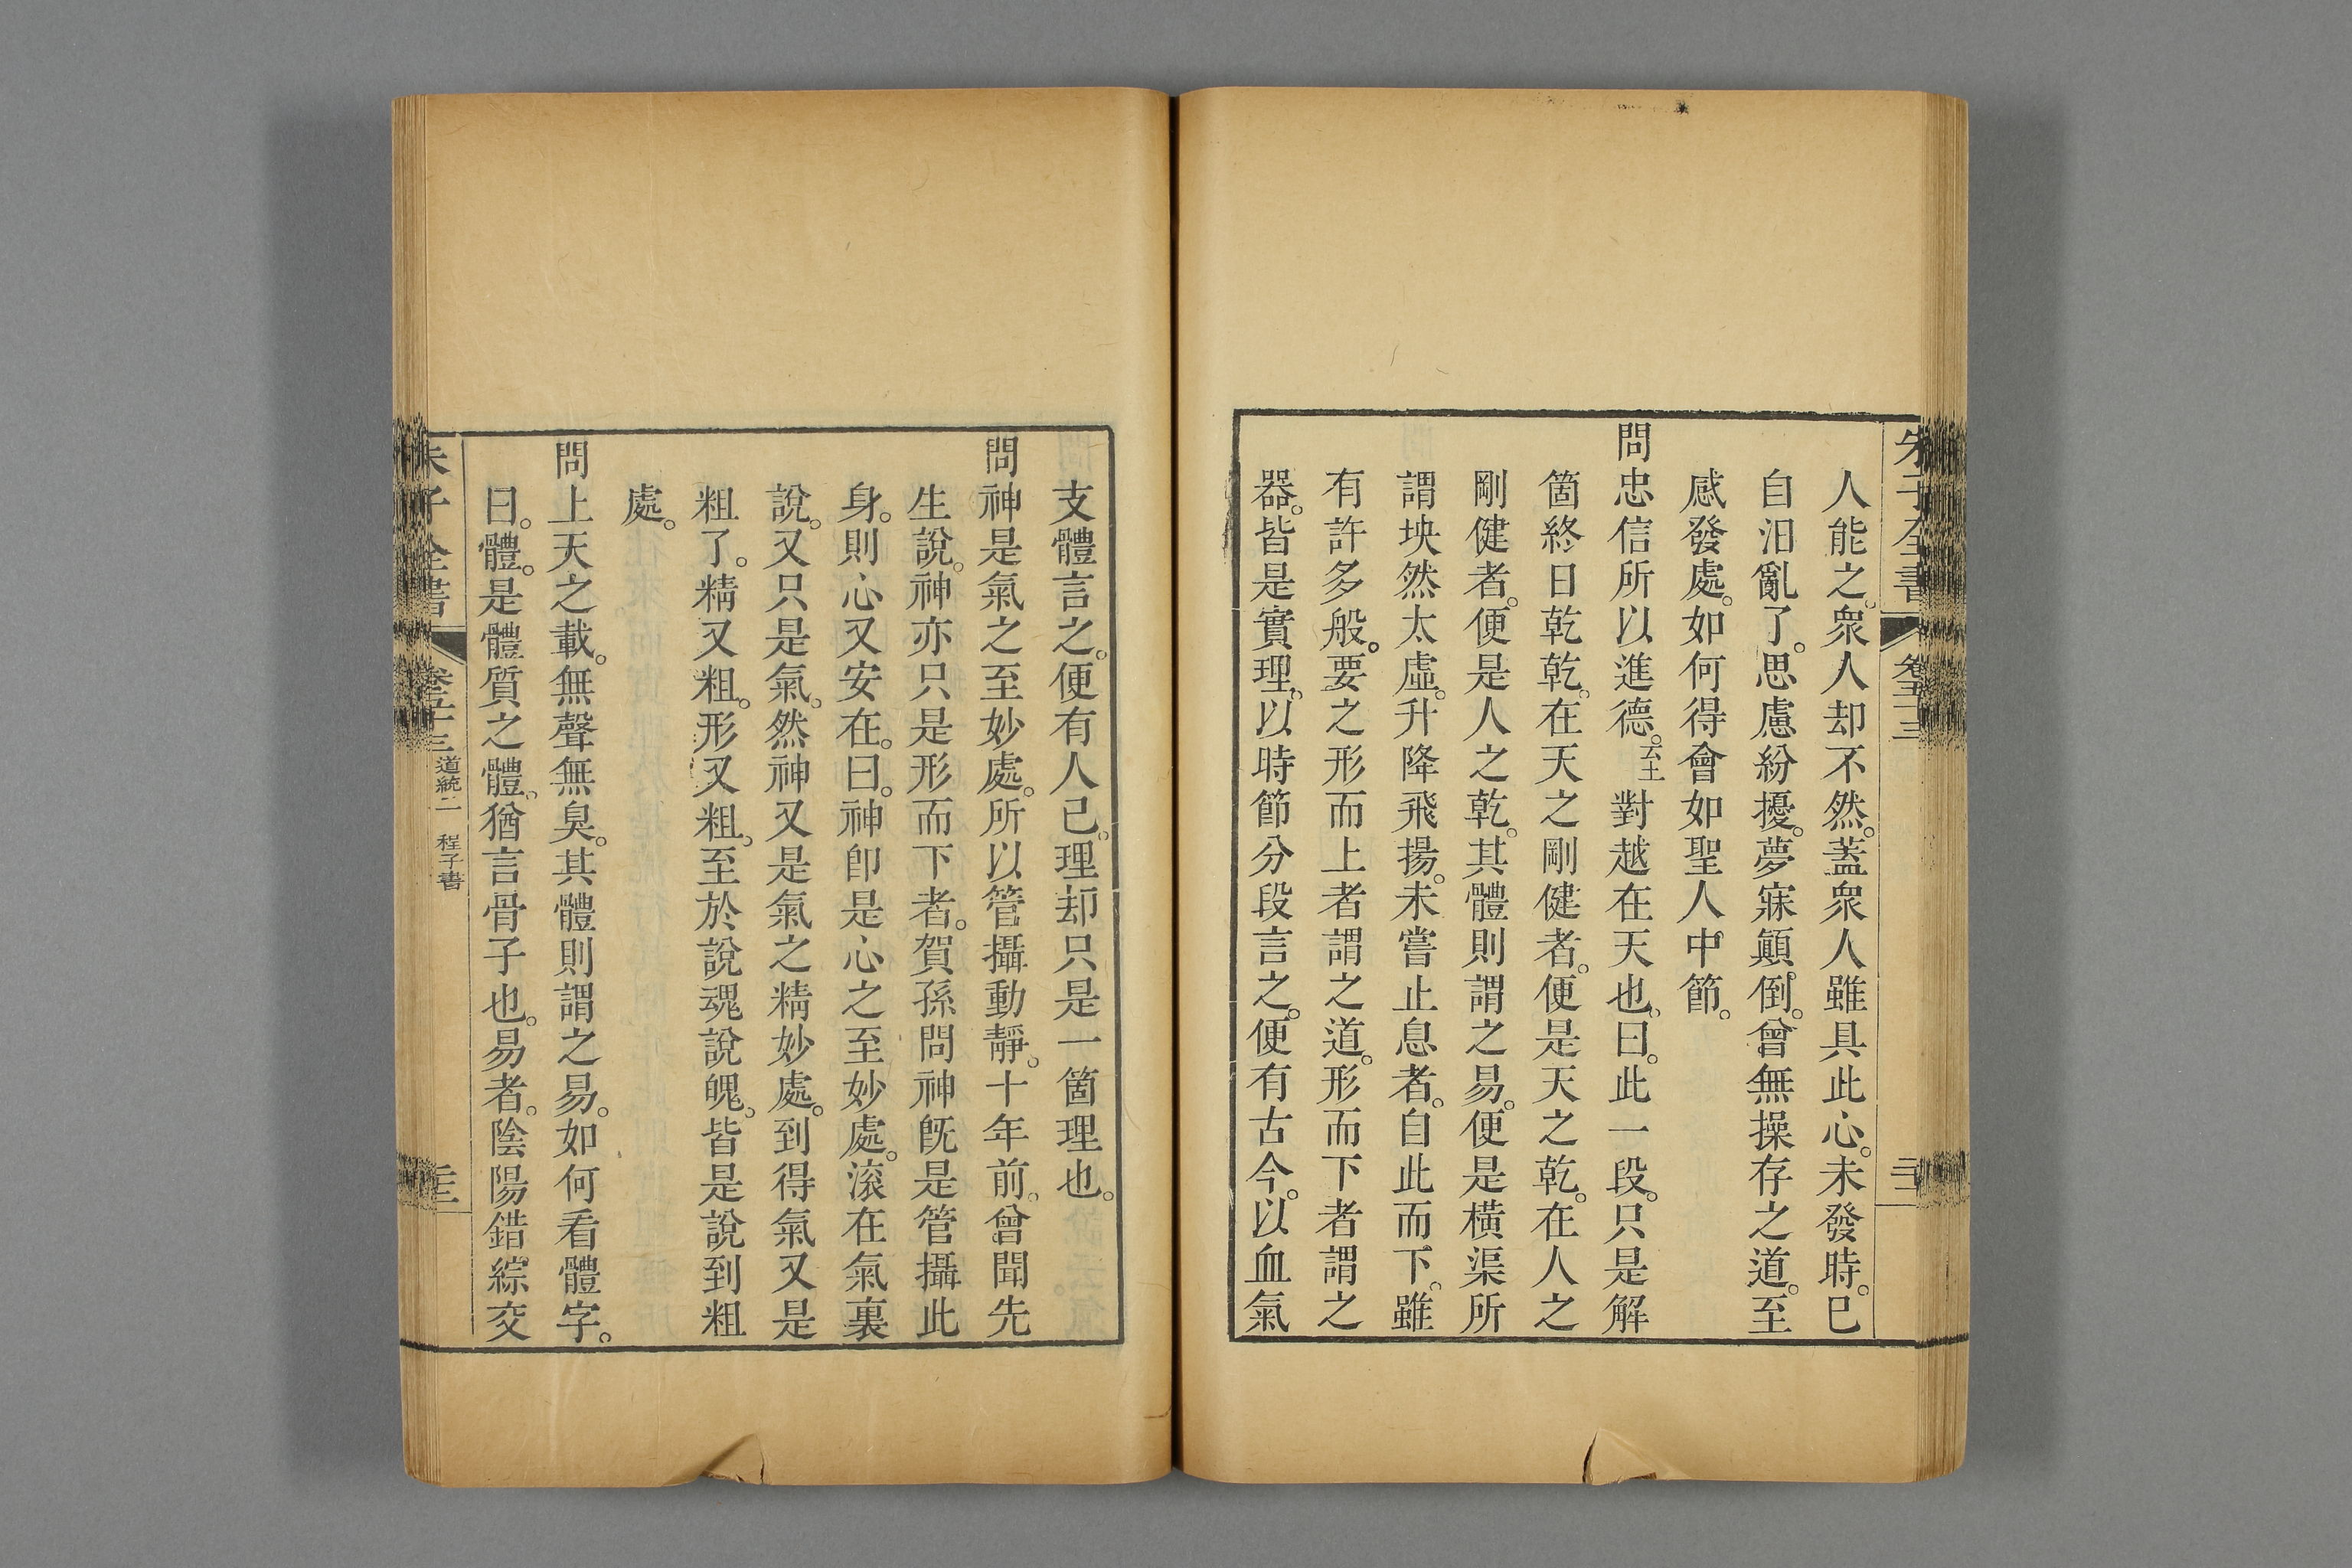 朱子全書 卷五十三
人能之。衆人却不然。蓋衆人雖具此心。未發時。已
自汨亂了。思慮紛擾。夢寐顚倒。曾無操存之道。至
感發處。如何得會如聖人中節。
問忠信所以進德。云土 對越在天也。曰。此一段。只是解
箇終日乾乾。在天之剛健者。便是天之乾。在人之
剛健者。便是人之乾。其體則謂之易。便是橫渠所
謂坱然太虛。升降飛揚。未嘗止息者。自此而下。雖
有許多般。要之形而上者謂之道。形而下者謂之
器。皆是實理。以時節分段言之。便有古今。以血氣
支體言之。便有人己。理却只是一箇理也。
問神是氣之至妙處。所以管攝動靜。十年前。曾聞先
生說。神亦只是形而下者。賀孫問神旣是管攝此
身。則心又安在。曰。神卽是心之至妙處。滚在氣裏
說。又只是氣。然神又是氣之精妙處。到得氣又是
粗了。精又粗。形又粗。至於說魂說魄。皆是說到粗
處。
問上天之載。無聲無臭。其體則謂之易。如何看體字。
曰。體。是體質之體。猶言骨子也。易者。陰陽錯綜交
朱子全書 卷五十三 道統二 程子書